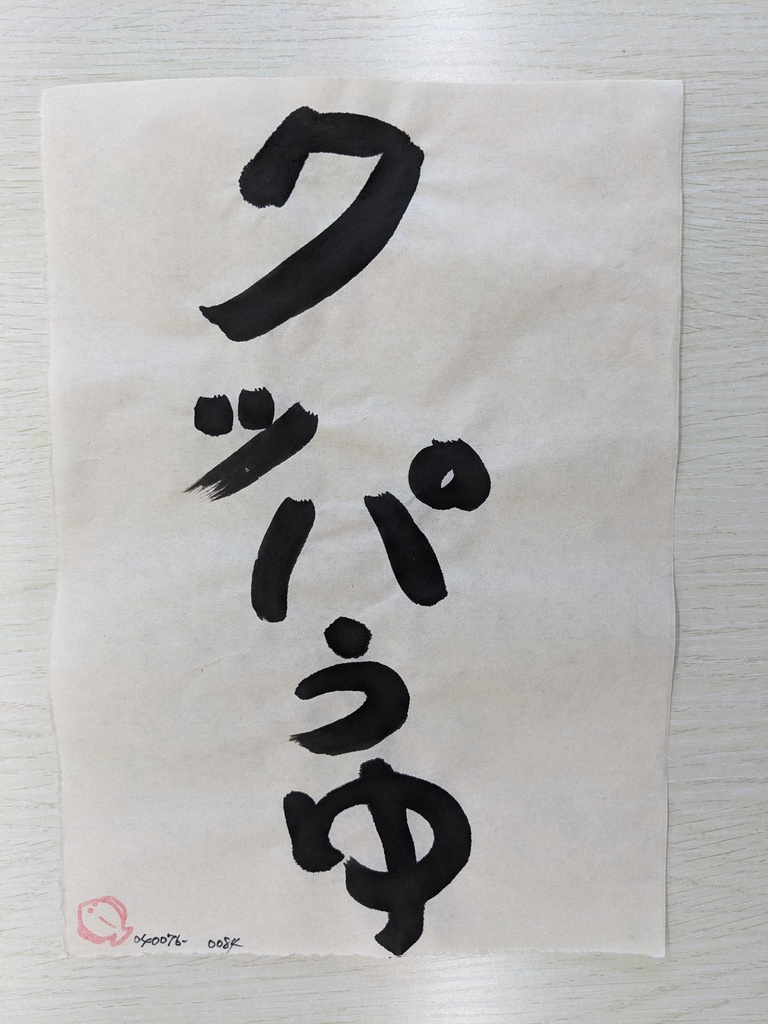 クッパうゆ
040076-0084